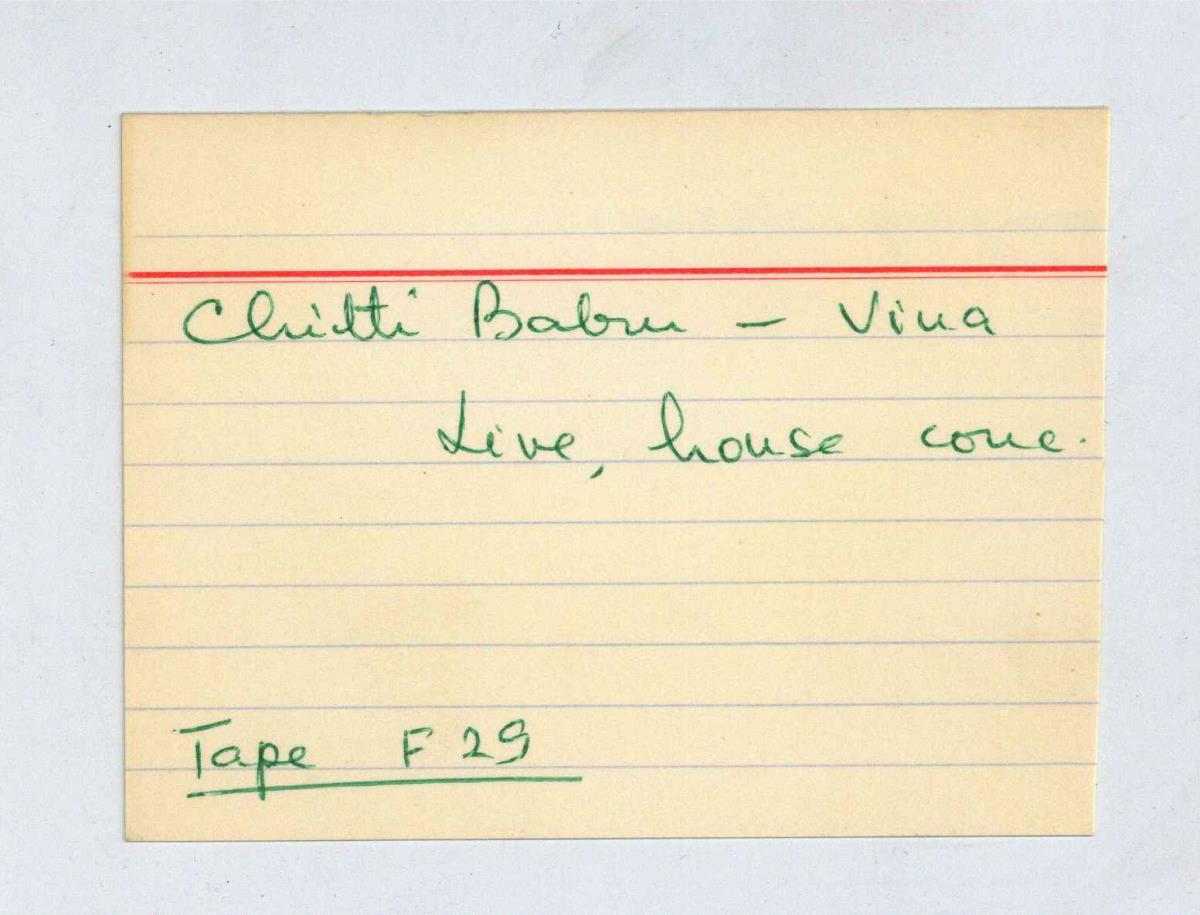 Chitti Babu – Vina
Live, house conc.
Tape F 29